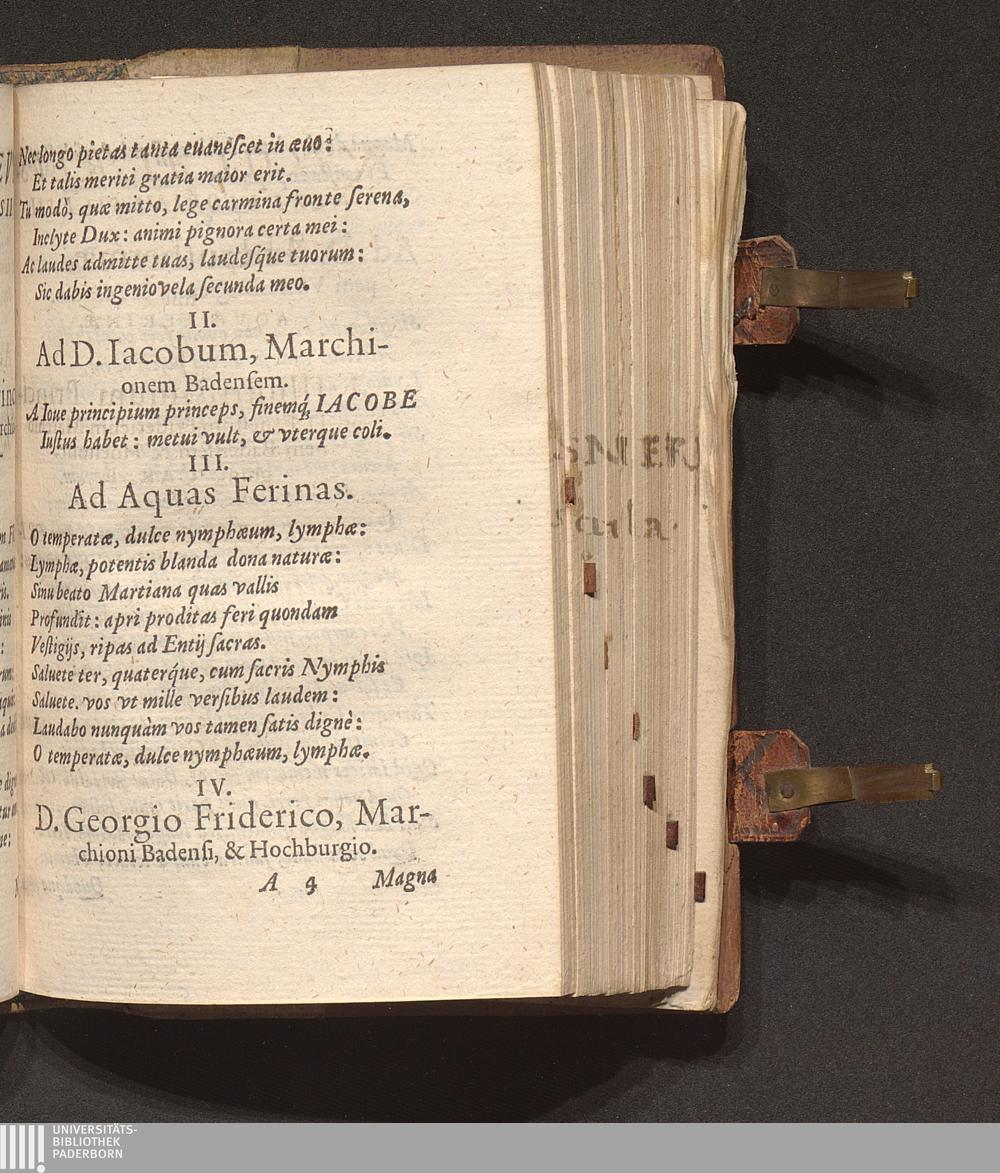 Nec longo pietas tanta euaneſcet in æuo:
Et talis meriti gratia maior erit.
Tu modò, quæ mitto, lege carmina fronte ſerena,
Inclyte Dux: animi pignora certa mei:
Ac laudes admitte tuas, laudeſq́ue tuorum:
Sic dabis ingenio vela ſecunda meo.
II.
Ad D. Iacobum, Marchi-
onem Badenſem.
A Ioue principium princeps, finemq́, IACOBE
Iuſtus habet: metui vult, & vterque coli.
III.
Ad Aquas Ferinas.
O temperatæ, dulce nymphæum, lymphæ:
Lymphæ, potentis blanda dona naturæ:
Sinu beato Martiana quas vallis
Profundit: apri proditas feri quondam
Veſtigijs, ripas ad Entij ſacras.
Saluete ter, quaterq́ue, cum ſacris Nymphis
Saluete. vos vt mille verſibus laudem:
Laudabo nunquàm vos tamen ſatis dignè:
O temperatæ, dulce nymphæum, lymphæ.
IV.
D. Georgio Friderico, Mar-
chioni Badenſi, & Hochburgio.
A 4 Magna
UNIVERSITÄTS-
BIBLIOTHEK
PADERBORN